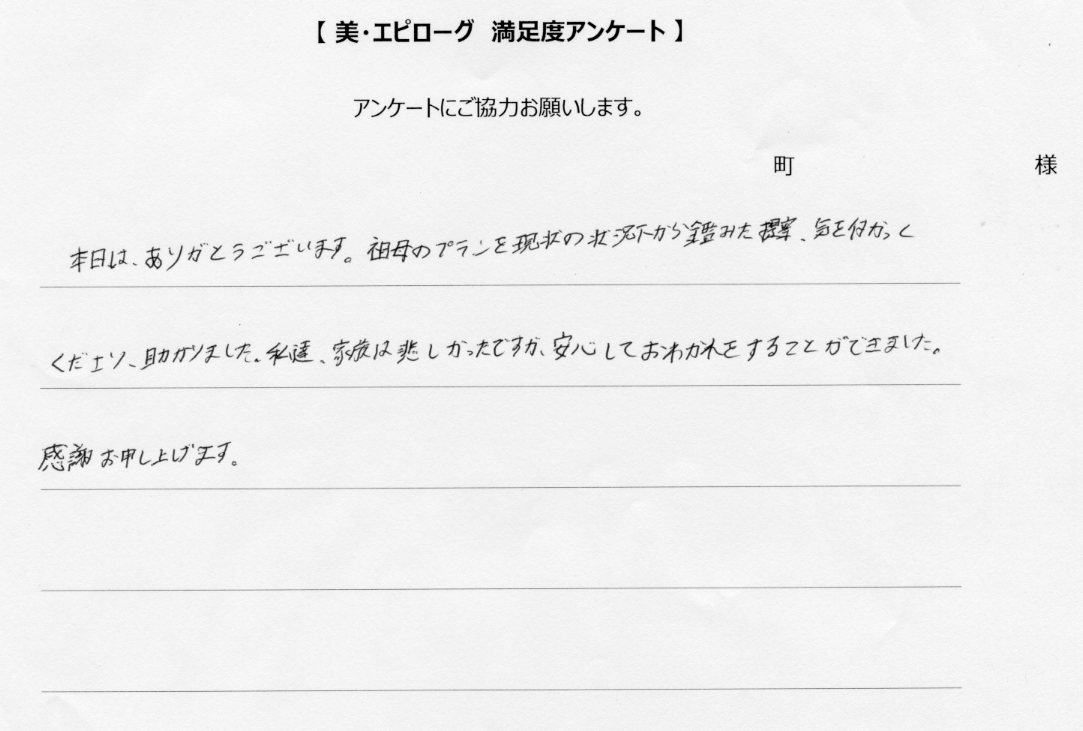 【 美・エピローグ 満足度アンケート 】
アンケートにご協力お願いします。
町 様
本日は、ありがとうございます。祖母のプランを現状の状況下から鑑みた提案、気を付かっく
ください、助かりました。私達、家族は悲しかったですが、安心しておわかれをすることができました。
感謝お申し上げます。